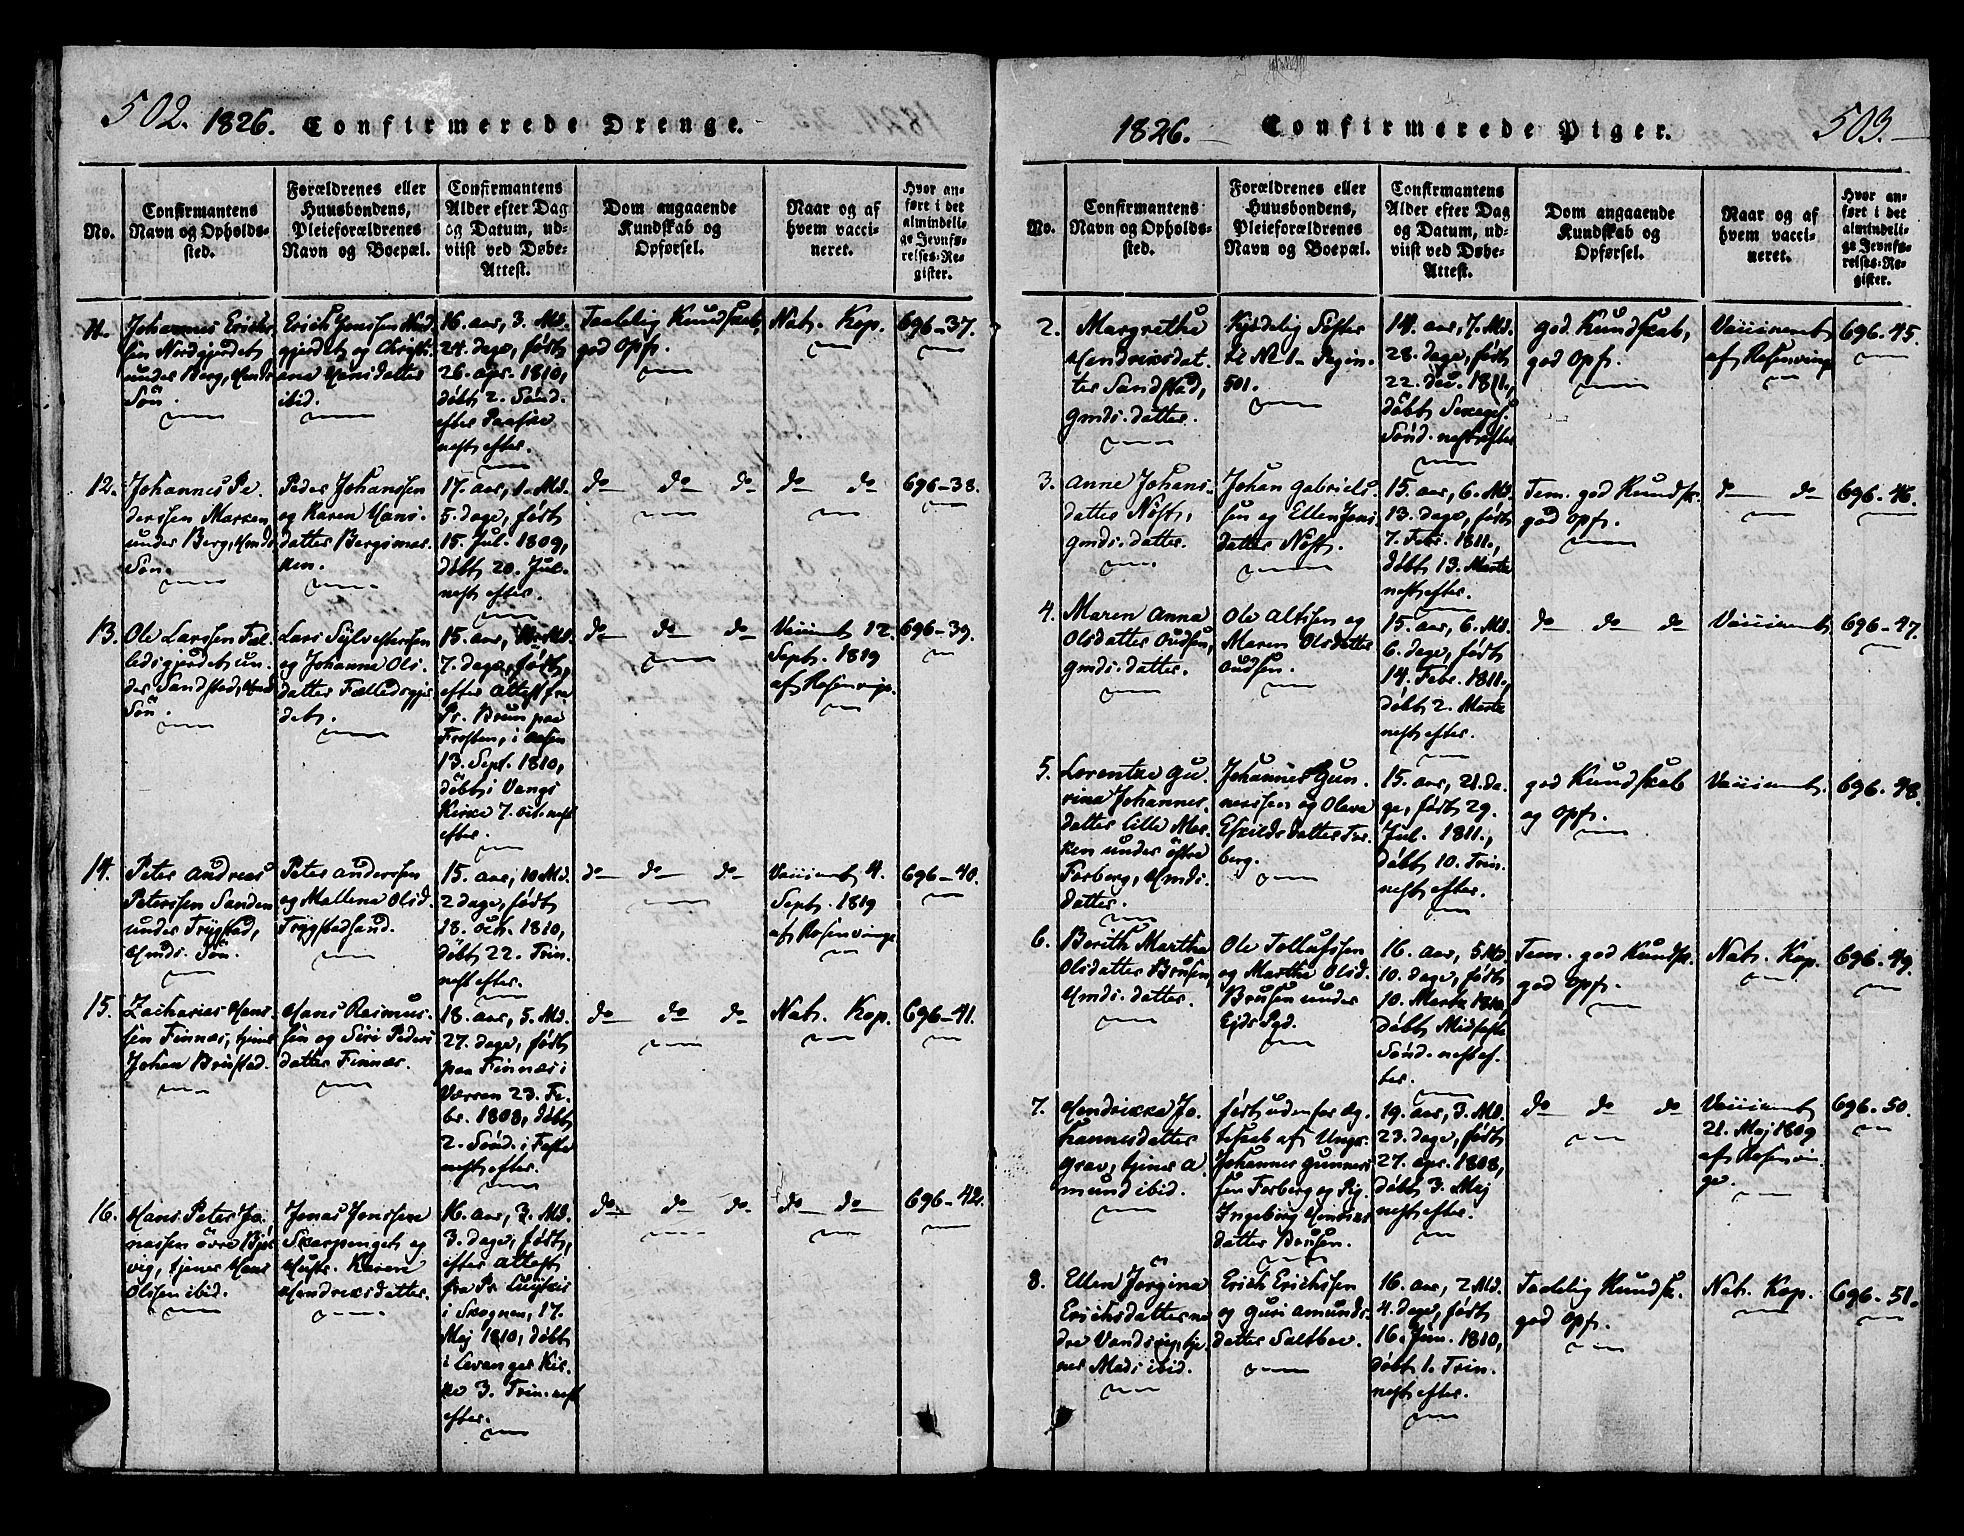 502. 1826. Confirmerede Drenge.
No.
Confirmantens
Navn og Opholds-
sted.
Forældrenes eller
Huusbondens,
Pleieforældrenes
Navn og Boepæl.
Confirmantens
Alder efter Dag
og Datum, ud-
viist ved Døbe-
Attest.
Dom angaaende
Kundskab og
Opførsel.
Naar og af
hvem vacci-
neret.
Hvor an-
ført i det
almindeli-
ge Jevnfø-
relses-Re-
gister.
11.
Johannes Erich-
sen Nordgjerdet
under Berg, Hmds
Søn.
Erich Jenssen Nord-
gjerdet og Christi-
ana Hansdatter
ibid.
16. aar, 3. Md.
24. dage, født
26. apr. 1810,
døbt 2. Sønd.
efter Paaske
nest efter.
Taalelig Kundskab,
god Opf.
Nat. Kop.
696-37.
12.
Johannes Pe-
derssen Marken
under Berg, Hmds
Søn.
Peder Johanssen
og Karen Hans-
datter Bergsmar-
ken.
17. aar, 1. Md.
5. dage, født
15. Jul. 1809,
døbt 20. Jul.
nest efter.
do do do
do do
696-38.
13.
Ole Larssen Fæl-
ledsgjerdet un-
der Sandstad, Hmds
Søn.
Lars Sylvesterssen
og Johanna Ols-
datter Fælledsgjer-
det.
15. aar, Md.
7. dage, født,
efter Attest fra
Pr. Brun paa
Frosten, i Aasen
13. Sept. 1810,
døbt i Vangs
Kirke 7. oct. nest
efter.
do do do
Vaccinert 12.
Sept. 1819
af Rosenvinge.
696-39.
14.
Peter Andreas
Peterssen Sanden
under Trygstad,
Hmds. Søn.
Peter Anderssen
og Mallena Olsd.
Trygstadsand.
15. aar, 10 Md.
2 dage, født
18. oct. 1810,
døbt 22. Trin.
nest efter.
do do do
Vaccinert 4.
Sept. 1819
af Rosenvinge
696-40.
15.
Zacharias Hans-
sen Finnæs, tjener
Johan Brustad.
Hans Rasmus-
sen og Siri Peders-
datter Finnæs.
18. aar, 5. Md.
27. dage, født
paa Finnæs i
Værren 23. Fe-
br. 1808, døbt
2. Sønd. i Faste
nest efter.
do do do
Nat. Kop.
696-41.
16.
Hans Peter Jo-
nassen øvre Bjer-
vig, tjener Hans
Olssen ibid.
Jonas Jonssen
Skarpenget og
Hustr. Karen
Hendricsdatter.
16. aar, 3. Md.
3. dage, født,
efter Attest
fra Pr.
i Skognen, 17.
Mej 1810, døbt
i Levanger Kir-
ke 3. Trin. nest
efter.
do do do
do do
696-42.
1826. Confirmerede Piger. 503.
No.
Confirmantens
Navn og Opholds-
sted.
Forældrenes eller
Huusbondens,
Pleieforældrenes
Navn og Boepæl.
Confirmantens
Alder efter Dag
og Datum, ud-
viist ved Døbe-
Attest.
Dom angaaende
Kundskab og
Opførsel.
Naar og af
hvem vacci-
neret.
Hvor an-
ført i det
almindeli-
ge Jevnfø-
relses-Re-
gister.
2.
Margrethe
Hendricsdat-
ter Sandstad,
Gmds. datter.
Kjødelig Søster
til No 1. Pagin.
501.
14. aar, 7. Md.
28. dage, født
22. dec. 1811,
døbt Sexages.
Sønd. nest efter
god Kundskab,
god Opf.
Vaccineret
af Rosenvinge
696-45.
3.
Anne Johans-
datter Nøst,
Gmds. datter.
Johan Gabriels-
sen og Ellen Jens-
datter Nøst.
15. aar, 6. Md.
13. dage, født
7. Febr. 1811,
døbt 13. Martz
nest efter.
Tem. god Kundsk.
god Opf.
do do
696-46.
4.
Maren Anna
Olsdatter Oudsen,
Gmds. datter.
Ole Altssen og
Maren Olsdatter
Oudsen.
15. aar, 6. Md.
6. dage, født
14. Febr. 1811,
døbt 2. Martz
nest efter.
do do do
Vaccinert
696-47.
5.
Lorentze Gu-
rina Johannes-
datter lille Mar-
ken under østre
Forberg, Hmds.
datter.
Johannes Gun-
nerssen og Oleva
Eskildsdatter For-
berg.
15. aar, 21. da-
ge, født 29.
Jul. 1811,
døbt 10. Trin.
nest efter.
god Kundskab
og Opf.
Vaccinert.
696-48.
6.
Berith Martha
Olsdatter Brusen,
Hmds. datter.
Ole Tollufssen
og Martha Olsd.
Brusen under
16. aar, 5 Md.
10. dage, født
10. Martz 1810,
døbt Midfaste
Sønd. nest ef-
ter.
Tem. god Kundsk.
god Opf.
Nat. Kop.
696-49.
7.
Hendrikka Jo-
hannesdatter
Grav, tjener A-
mund ibid.
født udenfor Æg-
teskab af Ungk.
Johannes Gunners-
sen Forberg og Pig.
Ingeborg
datter Brusen.
19. aar, 3. Md.
23. dage, født
27. apr. 1808,
døbt 3. Mej
nest efter.
do do do
Vaccinert
21. Maj 1809
af Rosenvin-
ge.
696-50.
8.
Ellen Jørgina
Erichsdatter ne-
dre Vandvig, tje-
ner Mads ibid.
Erich Erichssen
og Guri Amunds-
datter Saltboe.
16. aar, 2 Md.
4. dage, født
16. Jun. 1810,
døbt 1. Trin.
nest efter.
Taalelig Kundsk.
god Opf.
Nat. Kop.
696-51.